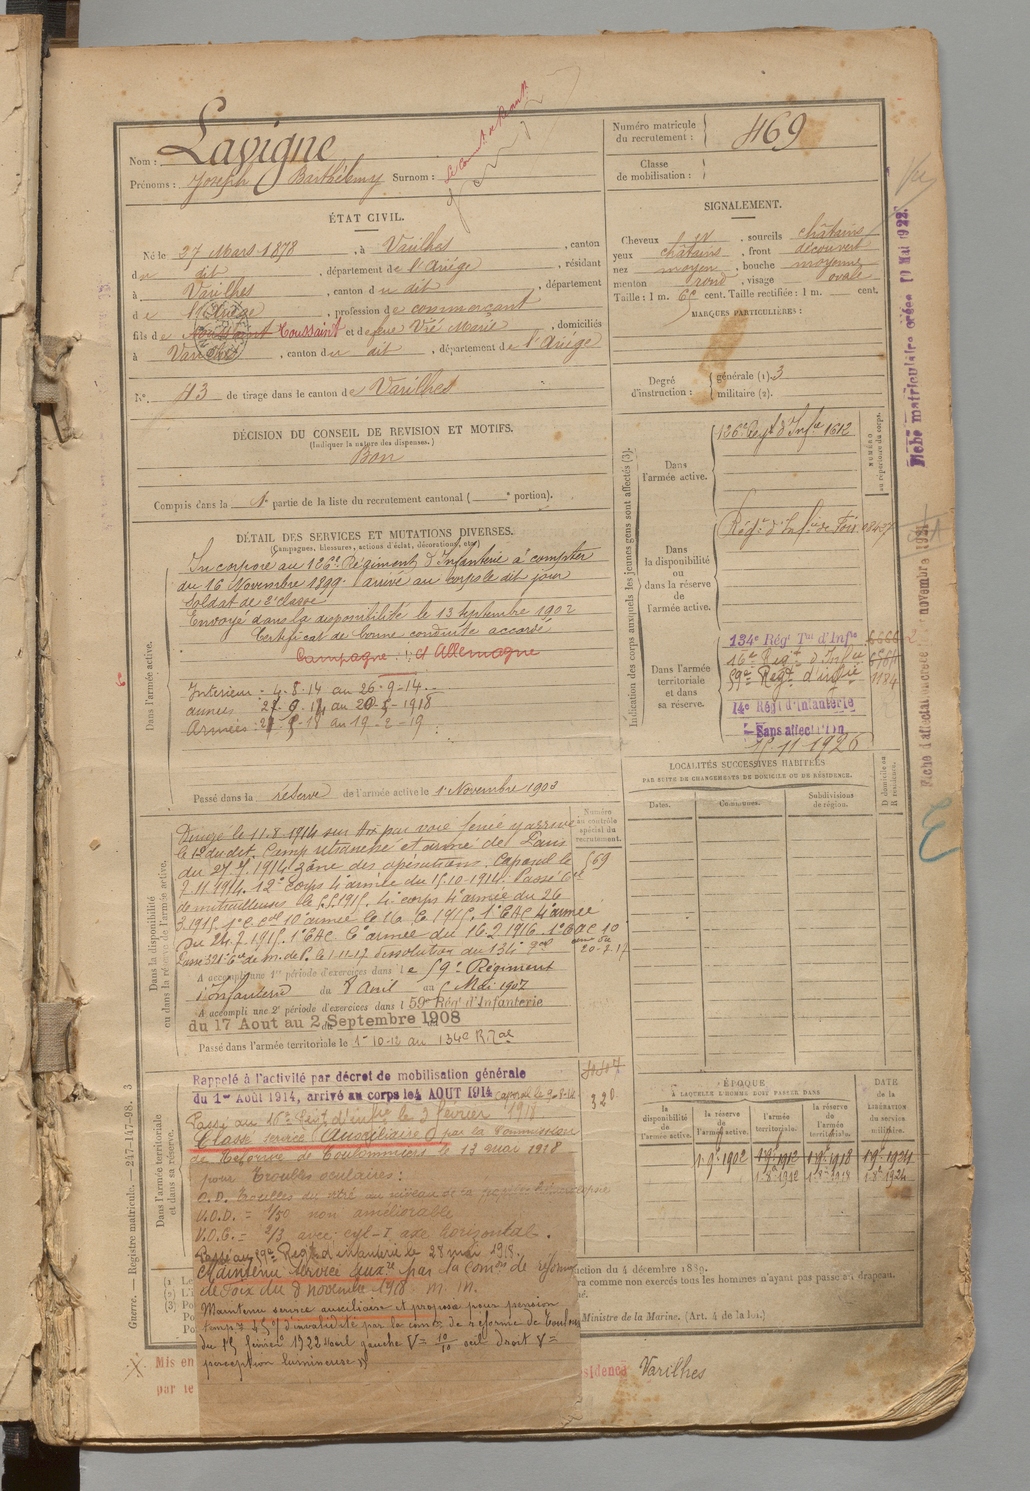 Nom : Lavigne
Prénoms : Joseph Barthélemy Surnom :
Numéro matricule
du recrutement : 469
Classe
de mobilisation :
ÉTAT CIVIL.
Né le 27 Mars 1878, à Varilhes, canton
du dit, département de l'Ariège, résidant
à Varilhes, canton du dit, département
de l'Ariège, profession de commerçant
fils de Toussaint et de feue Vié Marie, domiciliés
à Varilhes, canton du dit, département de l'Ariège
N° 43 de tirage dans le canton de Varilhes
SIGNALEMENT.
Cheveux, sourcils châtains
yeux châtains, front découvert
nez moyen, bouche moyenne
menton rond, visage ovale
Taille : 1 m. cent. Taille rectifiée : 1 m. cent.
MARQUES PARTICULIÈRES :
Degré
d'instruction :
générale (1). 3
militaire (2).
DÉCISION DU CONSEIL DE REVISION ET MOTIFS.
(Indiquer la nature des dispenses.)
Bon
Compris dans la 1e partie de la liste du recrutement cantonal ( e portion).
DÉTAIL DES SERVICES ET MUTATIONS DIVERSES.
(Campagnes, blessures, actions d'éclat, décorations, etc.)
Dans l'armée active.
Incorporé au 126e Régiment d'Infanterie à compter
du 16 Novembre 1899. arrivé au corps le dit jour
Soldat de 2e classe
Envoyé dans la disponibilité le 13 septembre 1902
Certificat de bonne conduite accordé
Campagne : ct Allemagne
Intérieur : 4.8.14 au 26-9-14.
armées : 27-9-14 au 20-5-1918
Armées : au 19-2-19
Passé dans la réserve de l'armée active le 1 Novembre 1903
Indication des corps auxquels les jeunes gens sont affectés (3).
Dans
l'armée active.
126e Regt d'Infie 1612
NUMÉRO
au répertoire du corps.
Dans
la disponibilité
ou
dans la réserve
de
l'armée active.
Régt d'Infie de Foix
Dans l'armée
territoriale
et dans
sa réserve.
134e Régt Tal d'Infie
16e Regt d'Infie
59e Regt d'infie 1184
14e Régt d'Infanterie
Sans affectation
11 1926
LOCALITÉS SUCCESSIVES HABITÉES
PAR SUITE DE CHANGEMENTS DE DOMICILE OU DE RÉSIDENCE.
Dates. Communes. Subdivisions
de région.
D domicile ou
R résidence.
Numéro
au contrôle
spécial du
recrutement.
569
Dans la disponibilité
ou dans la réserve de l'armée active.
Dirigé le 11.8.1914 sur Aix par voie ferrée y arrive
le 12 du dct. Camp retranché et armé de Paris
du 27.9.1914. zône des opérations. Caporal le
7.11.1914. 12e corps 4e armée du 15.10.1914. Passé Cie
de mitrailleuses le 5.5.1915. 4e corps 4e armée du 26
Du 24.7.1915. 1er CAC 6e armée du 16.2.1916. 1er CAC 10
A accompli une 1re période d'exercices dans le 59e Régiment
d'Infanterie du 8 Avril au 5 Mai 1907
A accompli une 2e période d'exercices dans l 59e Régt d'Infanterie
du 17 Aout au 2 Septembre 1908
Passé dans l'armée territoriale le 1er 10-12 au 134e R Tal
Dans l'armée territoriale
et dans sa réserve.
Rappelé à l'activité par décret de mobilisation générale
du 1er Août 1914, arrivé au corps le 4 AOUT 1914
320
Passé au 16e Regt d'infie le 3 février 1918
Classé service Auxiliaire par la Commission
de Réforme de Coulommiers le 13 mai 1918
pour Troubles oculaires :
V.O.D. = 1/50 non améliorable
V.O.G. = 2/3 avec cyl-1 axe horizontal.
Passé au 59e Regt d'infanterie le 28 mai 1918.
Maintenu service auxre par la Comon de réforme
de Foix du 8 novembre 1918. M. M.
Maintenu service auxiliaire et proposé pour pension
temp d'invalidité par la comon de réforme de Toulouse
du 15 février 1922 oeil gauche V = 10/10 oeil droit V =
perception lumineuse
ÉPOQUE
À LAQUELLE L'HOMME DOIT PASSER DANS
DATE
de la
LIBÉRATION
du service
militaire.
la
disponibilité
de
l'armée active.
la réserve
de
l'armée active.
l'armée
territoriale.
la réserve
de
l'armée
territoriale.
1.9bre 1902 1.9bre 1912 1.9bre 1918 1.9bre 1924
1.8bre 1912 1.8bre 1918 1.8bre 1924
ction du 4 décembre 1889.
ra comme non exercés tous les hommes n'ayant pas passé au drapeau.
Ministre de la Marine. (Art. 4 de la loi.)
Mis en
par le
sidence Varilhes
Guerre. — Registre matricule. — 247-147-98. 3
Fiche matriculaire créée 19 Mai 1922.
novembre 1921